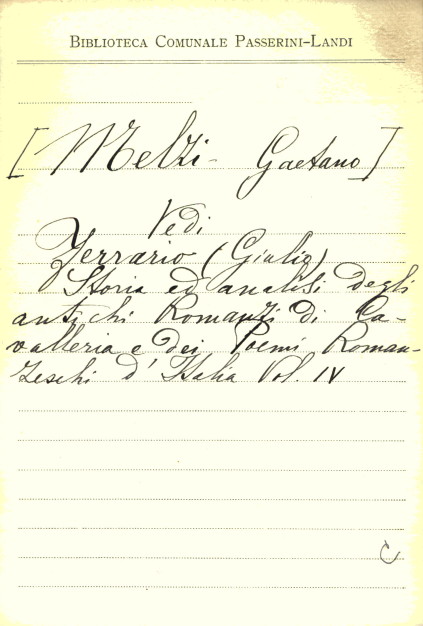 BIBLIOTECA COMUNALE PASSERINI-LANDI
[Melzi- Gaetano]
Vedi
Ferrario (Giulio)
Storia ed analisi degli
antichi Romanzi di Ca-
valleria e dei Poemi Roman-
zeschi d'Italia Vol. IV
C